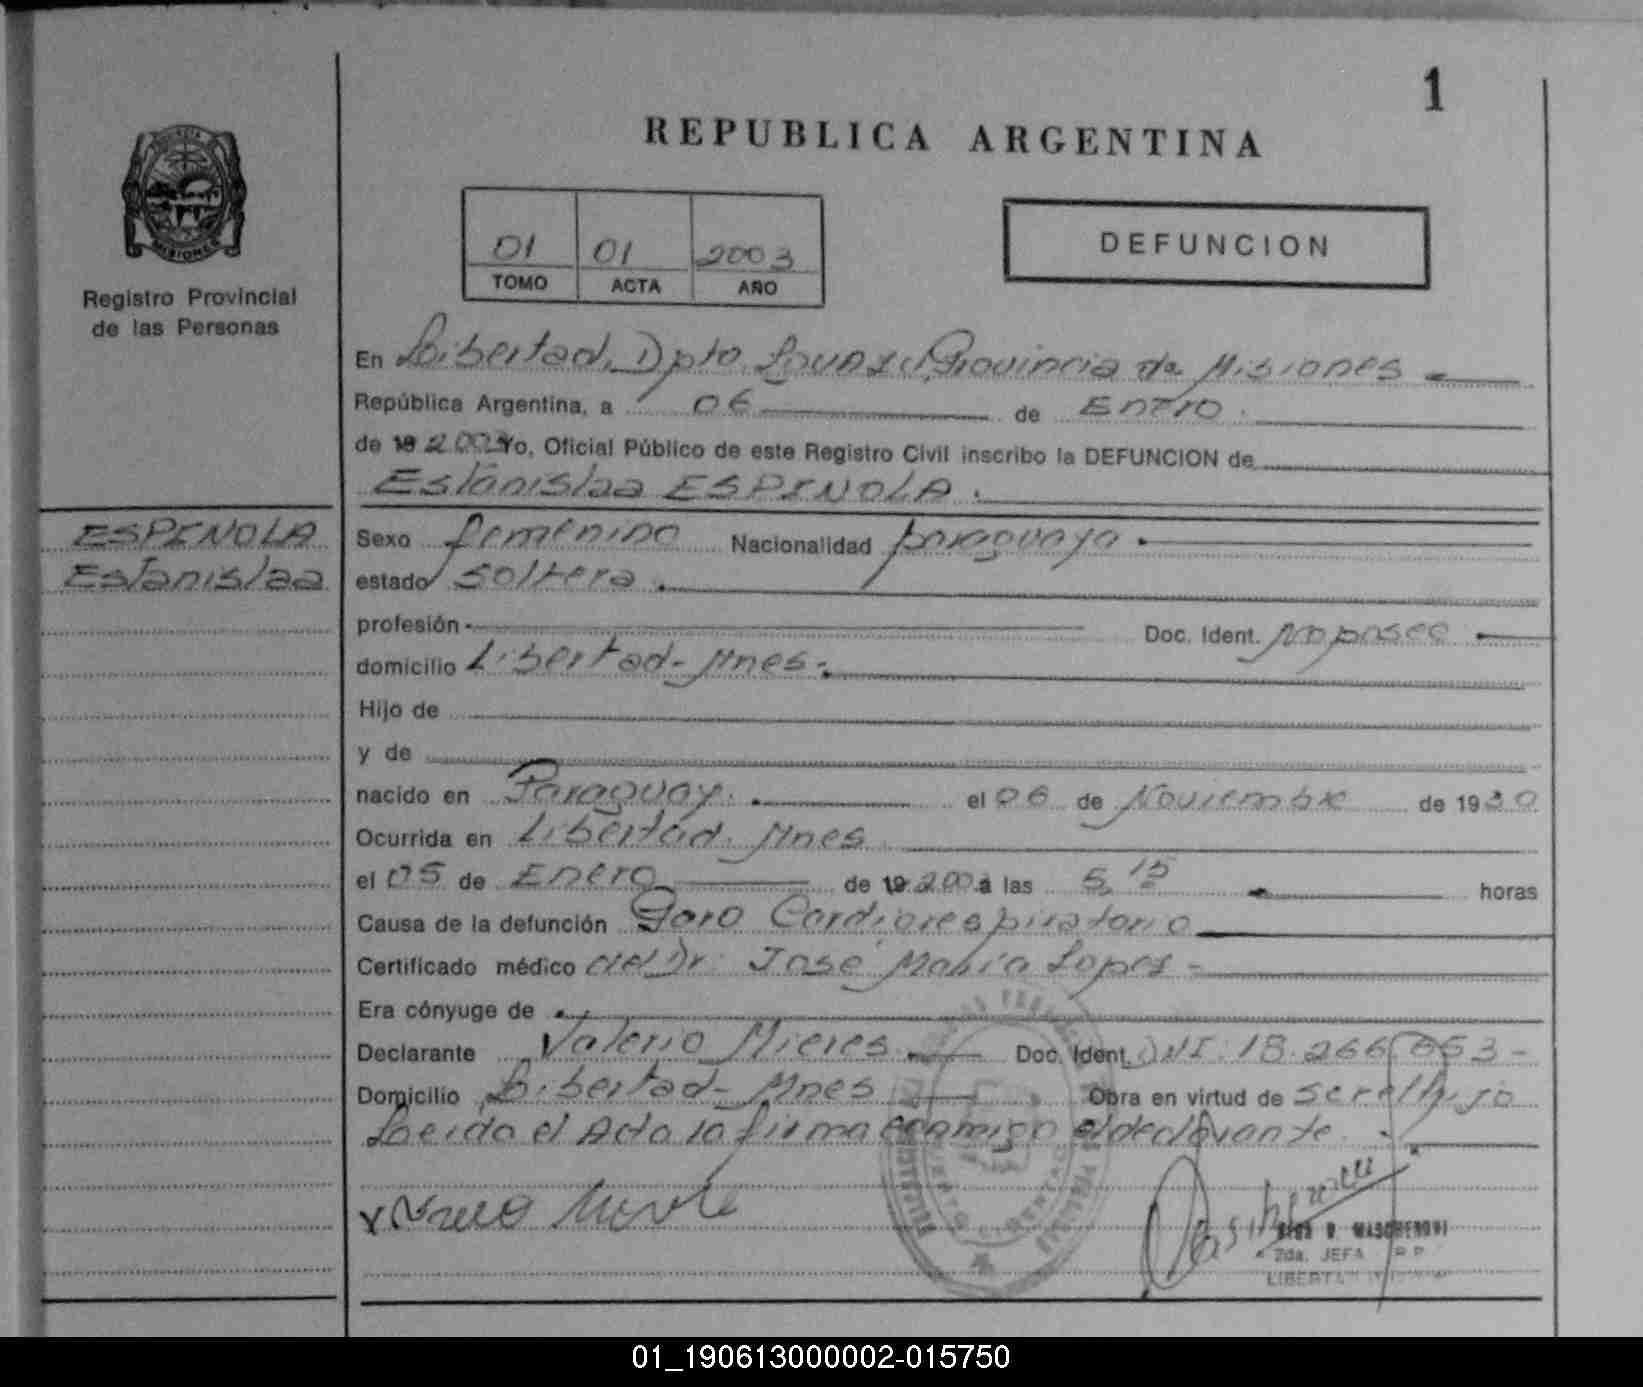 1
REPUBLICA ARGENTINA
PROVINCIA
MISIONES
Registro Provincial
de las Personas
01 01 2003
TOMO ACTA AÑO
DEFUNCION
En Libertad, Dpto. Provincia de Misiones
República Argentina, a 06 de Enero
de 19 2003 Yo, Oficial Público de este Registro Civil inscribo la DEFUNCION de
Estanislaa ESPINOLA
ESPINOLA
Estanislaa
Sexo femenino Nacionalidad paraguaya
estado soltera
profesión Doc. Ident. No posee
domicilio Libertad-Mnes
Hijo de
y de
nacido en Paraguay el 06 de Noviembre de 1930
Ocurrida en Libertad Mnes
el 05 de Enero de 19 2003 a las 5 15 horas
Causa de la defunción Paro Cardiorespiratorio
Certificado médico del Dr. José María Lopez
Era cónyuge de
Declarante Valerio Mieres Doc. Ident. DNI 18.266.653
Domicilio Libertad-Mnes Obra en virtud de ser el hijo
Leída el Acta la firma conmigo el declarante
2da. JEFA R.P.
LIBERTAD
01_190613000002-015750